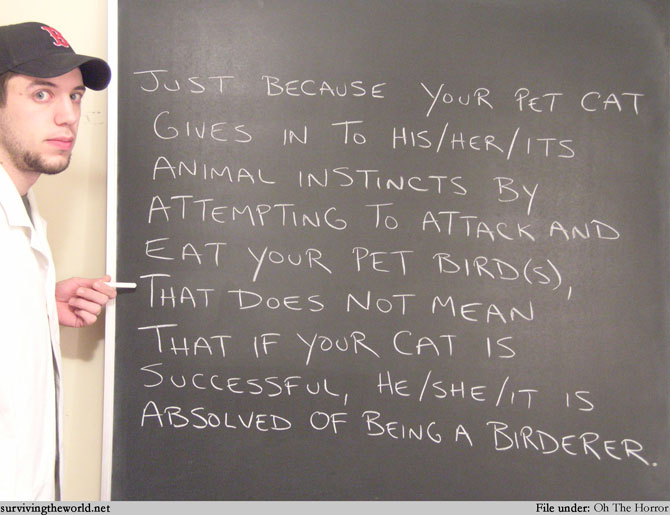 B
JUST BECAUSE YOUR PET CAT
GIVES IN TO HIS/HER/ITS
ANIMAL INSTINCTS BY
ATTEMPTING TO ATTACK AND
EAT YOUR PET BIRD(S),
THAT DOES NOT MEAN
THAT IF YOUR CAT IS
SUCCESSFUL, HE/SHE/IT IS
ABSOLVED OF BEING A BIRDERER.
survivingtheworld.net
File under: Oh The Horror